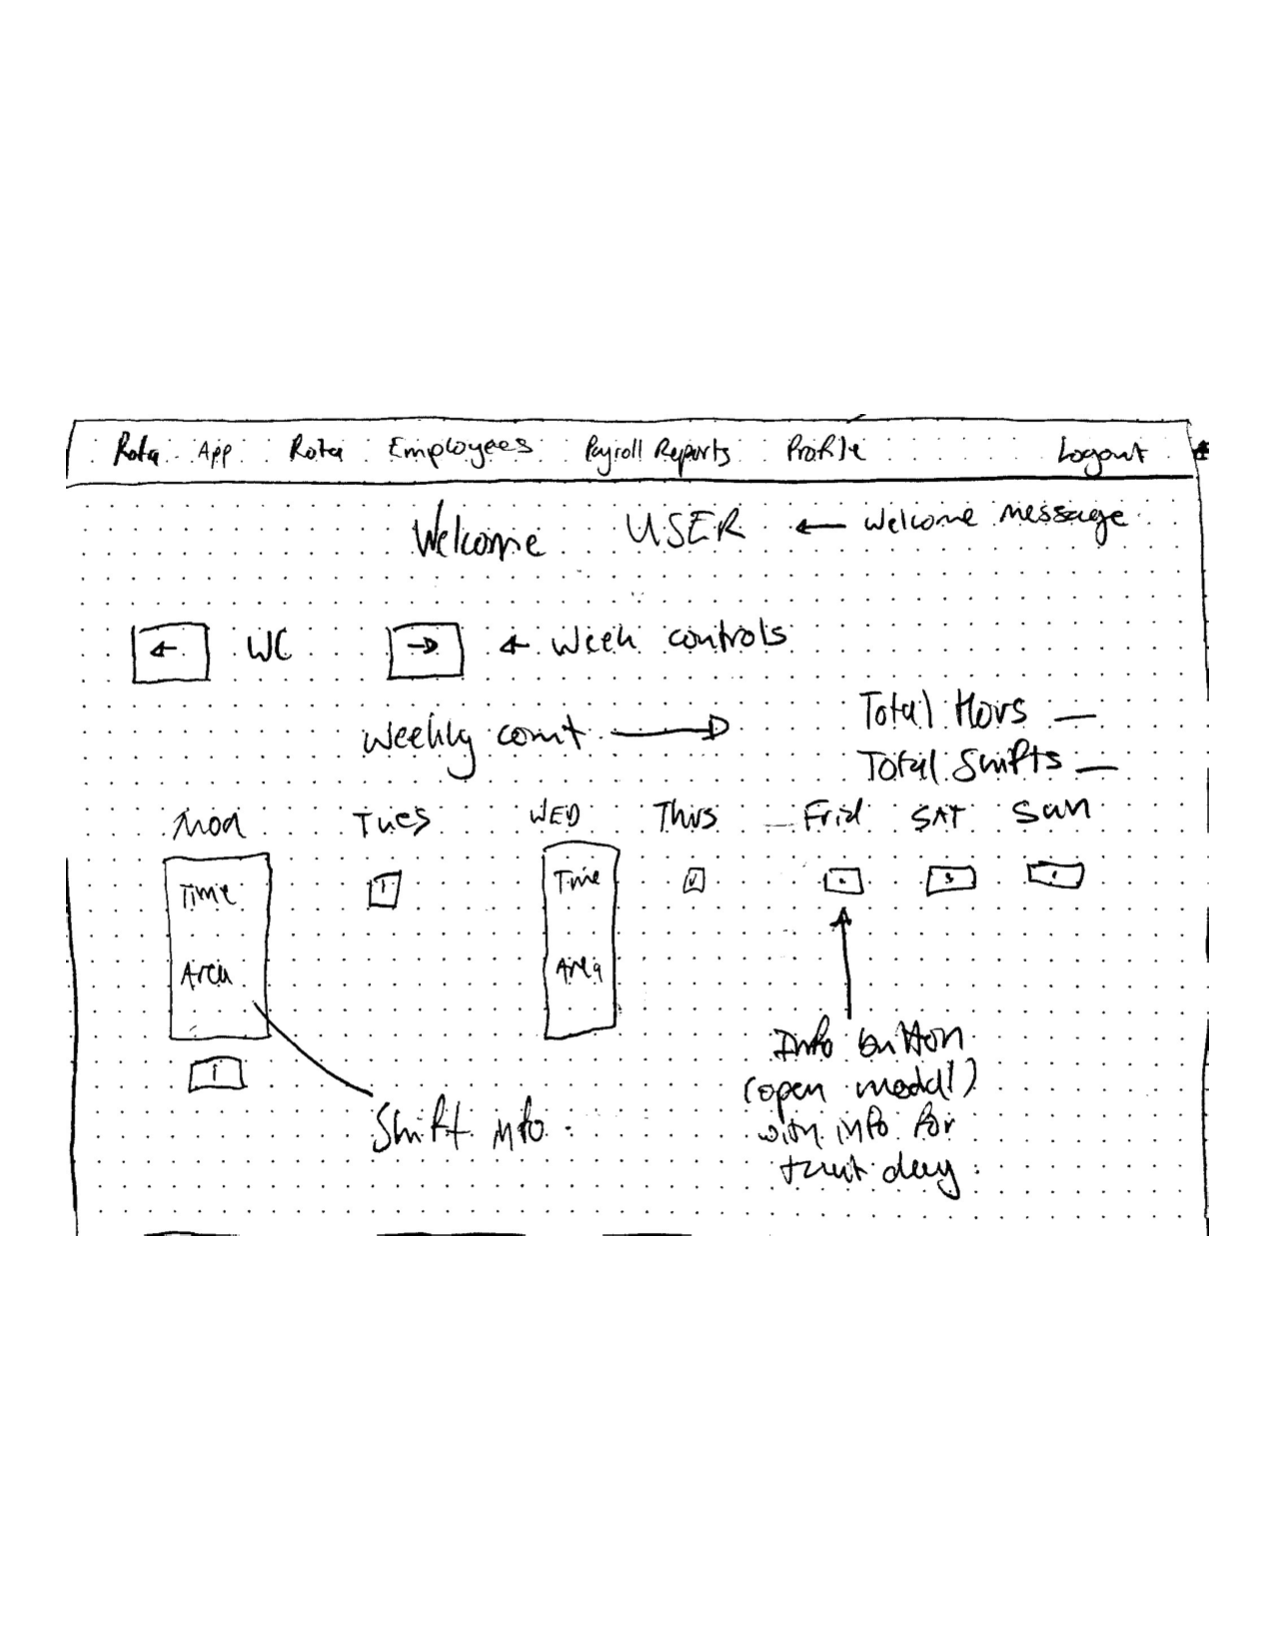 Rota App Rota Employees Payroll Reports Profile Logout
Welcome USER ← Welcome message
← WC → ← Week controls
Weekly count → Total Hours —
Total Shifts —
Mon Tues WED Thurs Frid SAT Sun
Time Time
Area Area
i
Info button
(open modal)
Shift info with info for
that day